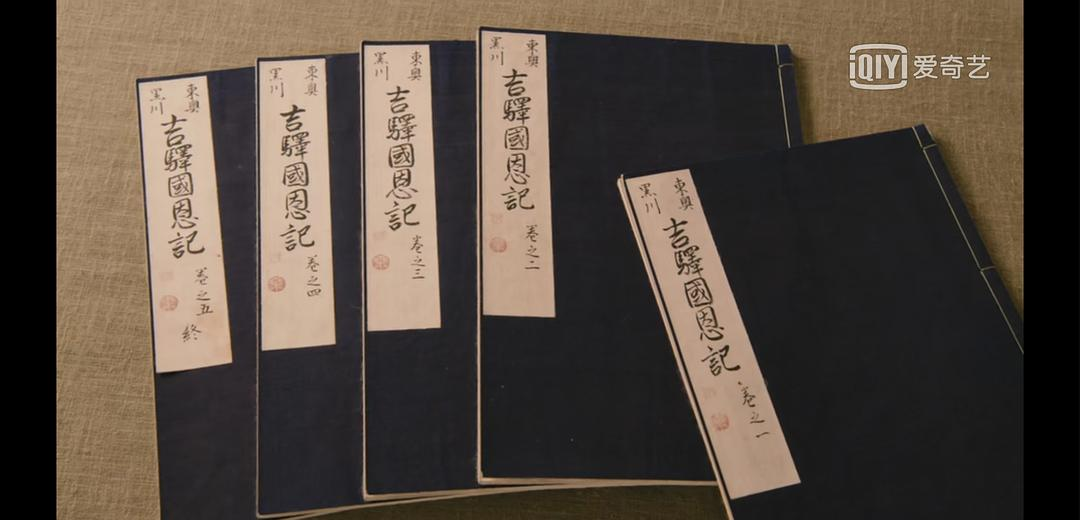 東奥
黑川
吉驛國恩記
卷之一
東奥
黑川
吉驛國恩記
卷之二
東奥
黑川
吉驛國恩記
卷之三
東奥
黑川
吉驛國恩記
卷之四
東奥
黑川
吉驛國恩記
卷之五
終
iQIYI 爱奇艺